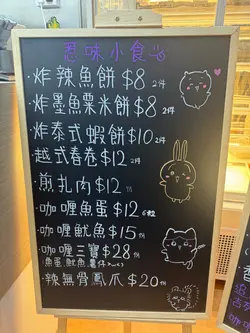 惹味小食
·炸辣魚餅$8 2件
·炸墨魚粟米餅$8 2件
·炸泰式蝦餅$10 2件
·越式春卷$12 2件
·煎扎肉$12 1件
·咖喱魚蛋$12 6粒
·咖喱魷魚$15
·咖喱三寶$28
(魚蛋魷魚薯仔)
·辣無骨鳳爪$20